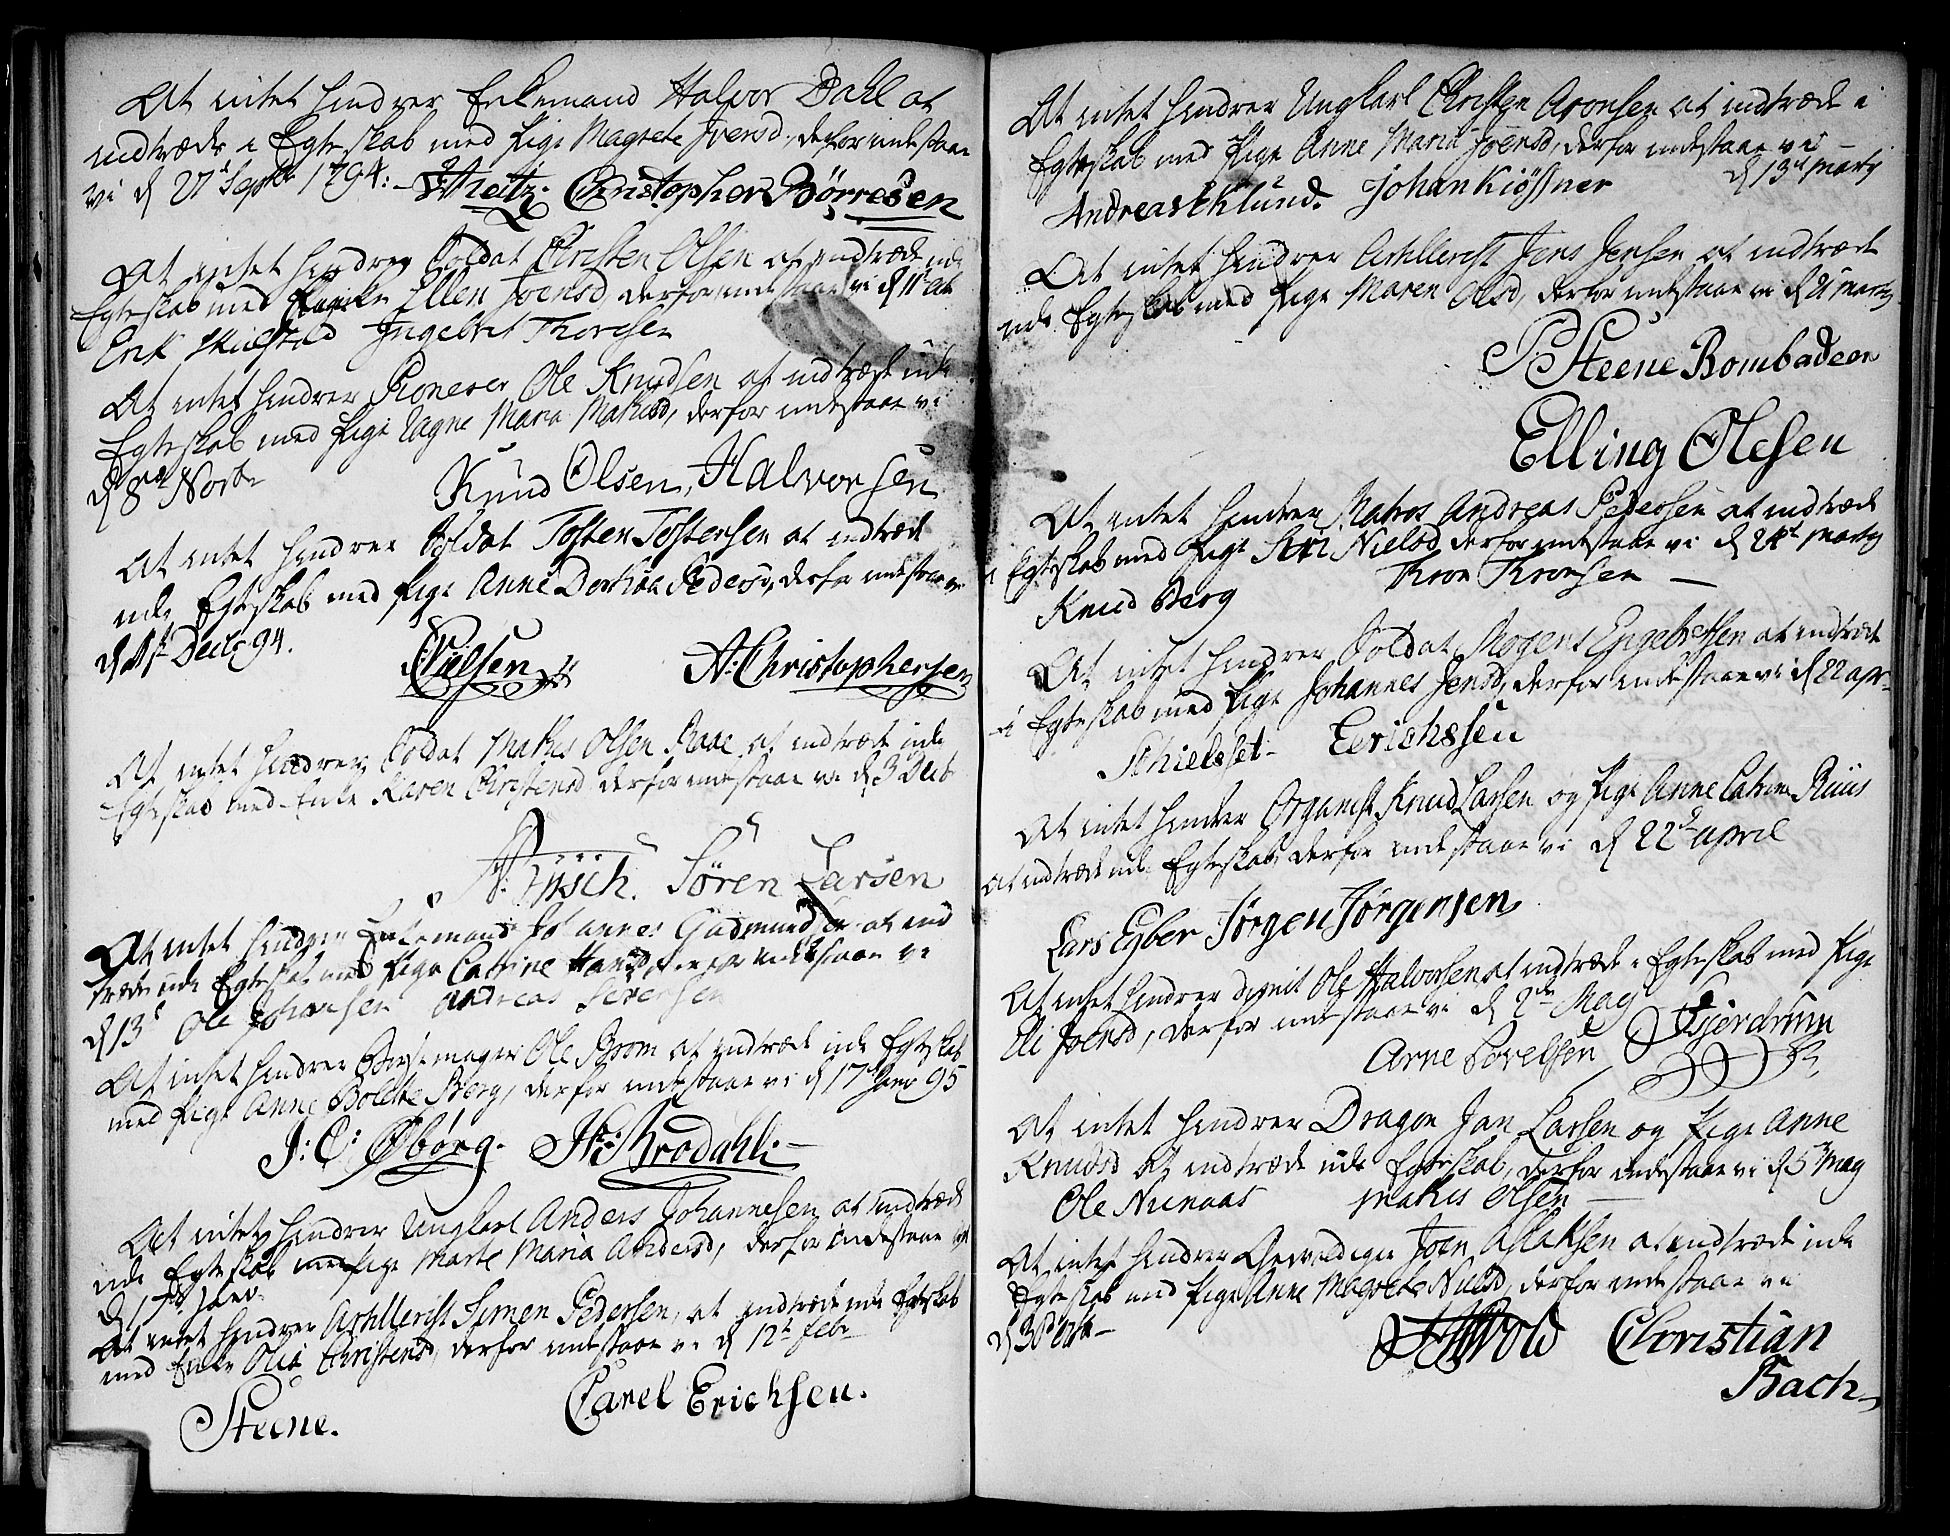 At intet hindrer Enkemand Halvor Dahl at
indtræde i Egteskab med Pige Magrete Iversd, derfor indestaae
vi d 27d Septbr 1794: Christopher Børresen
At intet hindrer Soldat Christen Olsen at indtræde udi
Egteskab med Ellen Joensd, derfor indestaae vi d 11t
Erik Ingebret Thoresen
At intet hindrer Pioneer Ole Knudsen at indtræde udi
Egteskab med Pige Maria derfor indestaae vi
d 8de Novbr Knud Olsen, Halvorsen
At intet hindrer Soldat Tosten Tostensen at indtræde
udi Egteskab med Pige Anne Dorthea Pedersd, derfor indestaae vi
d Decbr 94. Nielsen A: Christophersen
At intet hindrer Soldat Makus Olsen at indtræde udi
Egteskab med Enke Karen Christensd derfor indestaae vi d 3 Decb
Søren Larsen
At intet hindrer Enkemand Johannes Gudmundsen at ind
træde udi Egteskab med Pige Catrine Hansd, derfor indestaae vi
d 13d Ole Johansen Andreas
At intet hindrer Ole at indtræde udi Egteskab
med Pige Anne Bolette Berg, derfor indestaae vi d 17d Janr 95
J: O: Øbørg. Brodahl
At intet hindrer Ungkarl Anders Johannesen at indtræde
udi Egteskab med Pige Marte Maria Andersd, derfor indestaae vi
d 17d Janr
At intet hindrer Artillerist Simen Pedersen, at indtræde udi Egteskab
med Enke Olia Christensd, derfor indestaae vi d 12t Febr
Steene. Carel Erichsen.
At intet hindrer Ungkarl Christen Aronsen at indtræde i
Egteskab med Pige Anne Maria Joensd, derfor indestaae vi
d 13d Marty
Andreas Eklund. Johan Kiøsner
At intet hindrer Artillerist Jens Jensen at indtræde
udi Egteskab med Pige Maren Olsd, derfor indestaae vi d Marty
Steene Bombadeer
Elling Olesen
At intet hindrer Matros Andreas Pedersen at indtræde
i Egteskab med Pige Siri Nielsd derfor indestaae vi d 24d Marty
Knud Berg Thron Thronsen
At intet hindrer Soldat Mogens Engebretsen at indtræde
i Egteskab med Pige Johannes Jensd, derfor indestaae vi d 22 apr
Erichssen
At intet hindrer Organist Knud Larsen og Pige Anne Catrine
at indtræde udi Egteskab derfor indestaae vi d 22d april
Lars Egber Jørgen Jørgensen
At intet hindrer Ole Halvorsen at indtræde i Egteskab med Pige
Eli Joensd, derfor indestaae vi d 2de May
Arne Gjerdrum
At intet hindrer Dragon Jan Larsen og Pige Anne
Knudsd at indtræde udi Egteskab, derfor indestaae vi d 5t May
Ole Makus Olsen
At intet hindrer Gevaldiger Joen Aslaksen at indtræde udi
Egteskab med Pige Anne Magrete Nielsd, derfor indestaae vi
Christian
Bach